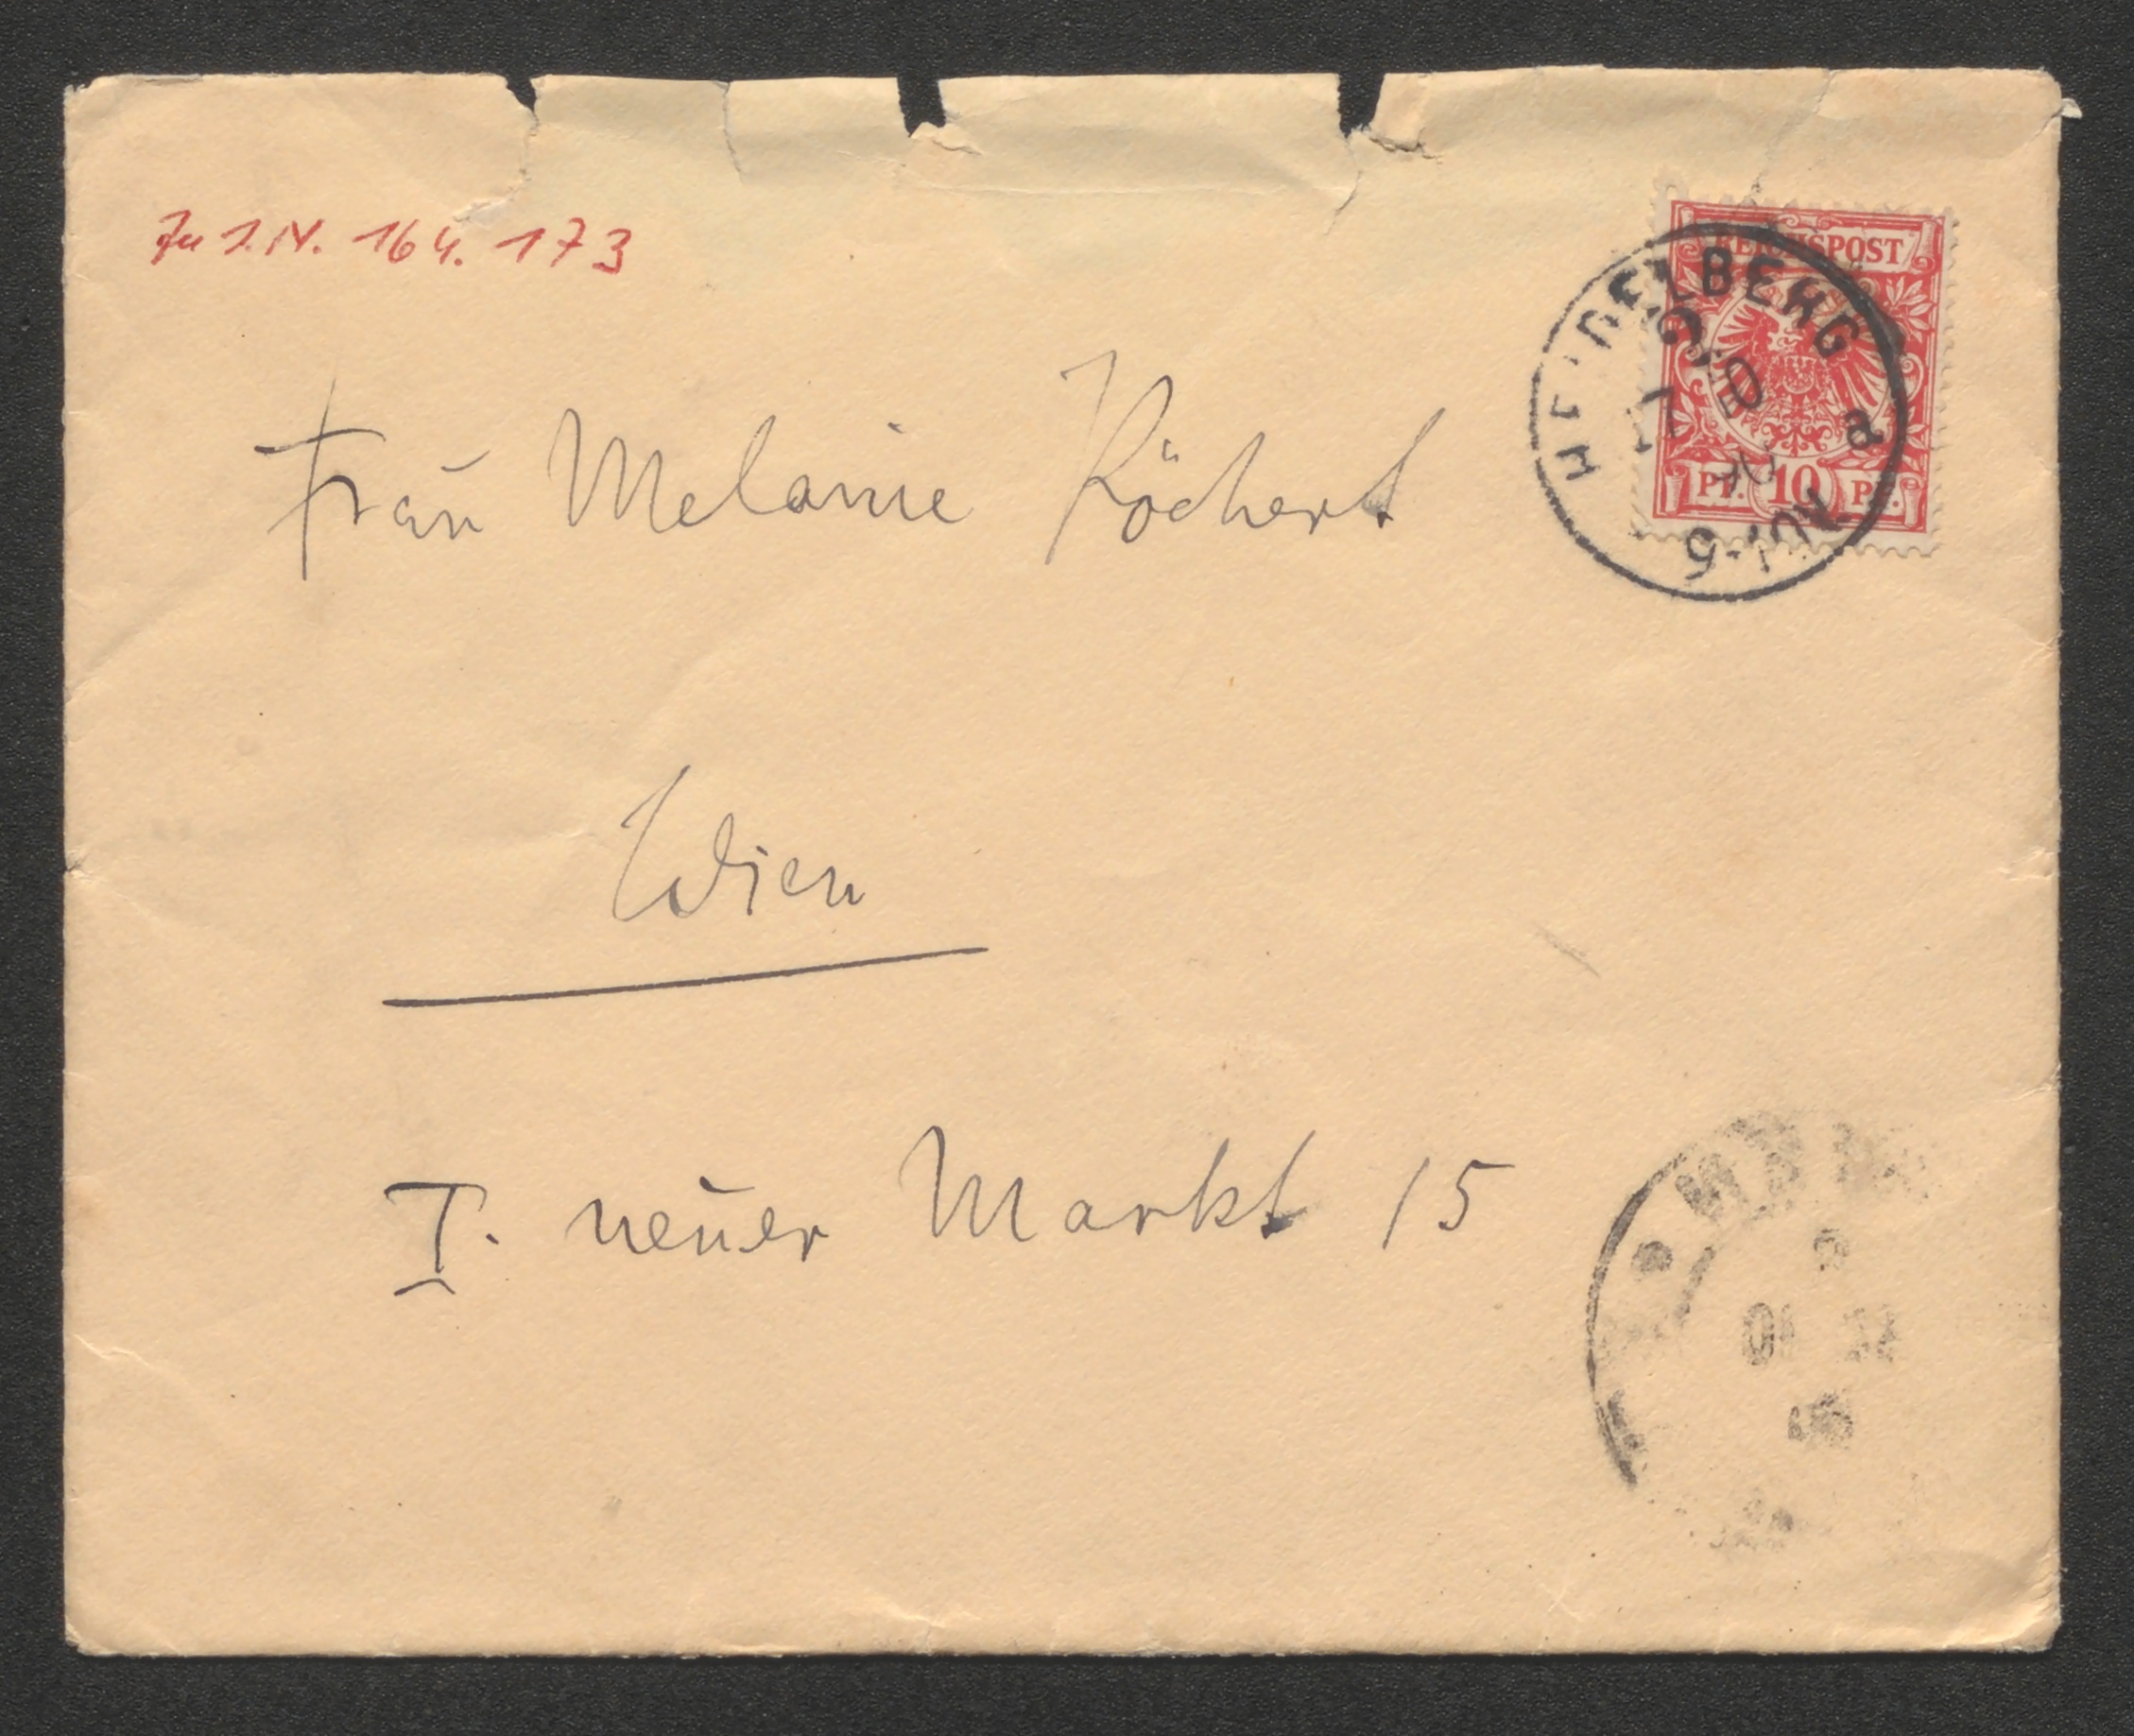 Zu I.N. 164.173
REICHSPOST
PF. 10 PF.
HEIDELBERG
Frau Melanie Köchert
Wien
I. neuer Markt 15